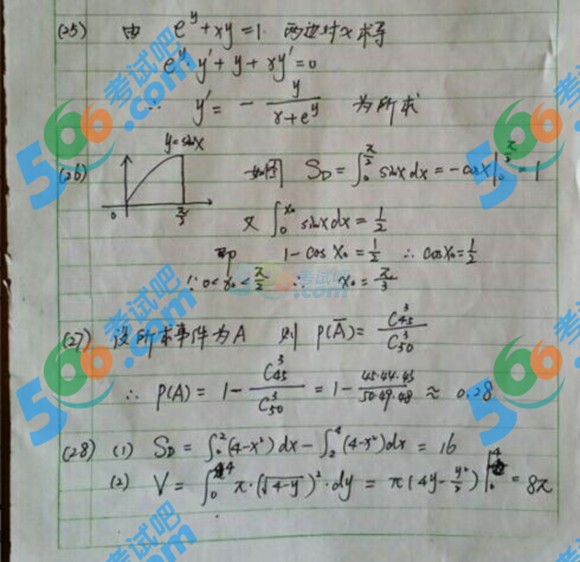 (25) 由 e^y + xy = 1. 两边对x求导
e^y · y' + y + xy' = 0
∴ y' = - y/(x+e^y) 为所求
(26) y=sinx 0 π/2 如图 S_D = ∫_0^{π/2} sinx dx = -cosx |_0^{π/2} = 1
又 ∫_0^{x₀} sinx dx = 1/2
即 1 - cos x₀ = 1/2 ∴ cosx₀ = 1/2
∵ 0 < x₀ < π/2 ∴ x₀ = π/3
(27) 设所求事件为A 则 P(Ā) = C_{45}^3/C_{50}^3
∴ P(A) = 1 - C_{45}^3/C_{50}^3 = 1 - 45·44·43/50·49·48 ≈ 0.28
(28) (1) S_D = ∫_0^2 (4-x²) dx - ∫_2^4 (4-x²) dx = 16
(2) V = ∫_0^4 π·(√(4-y))²·dy = π(4y - y²/2)|_0^4 = 8π
566考试吧.com